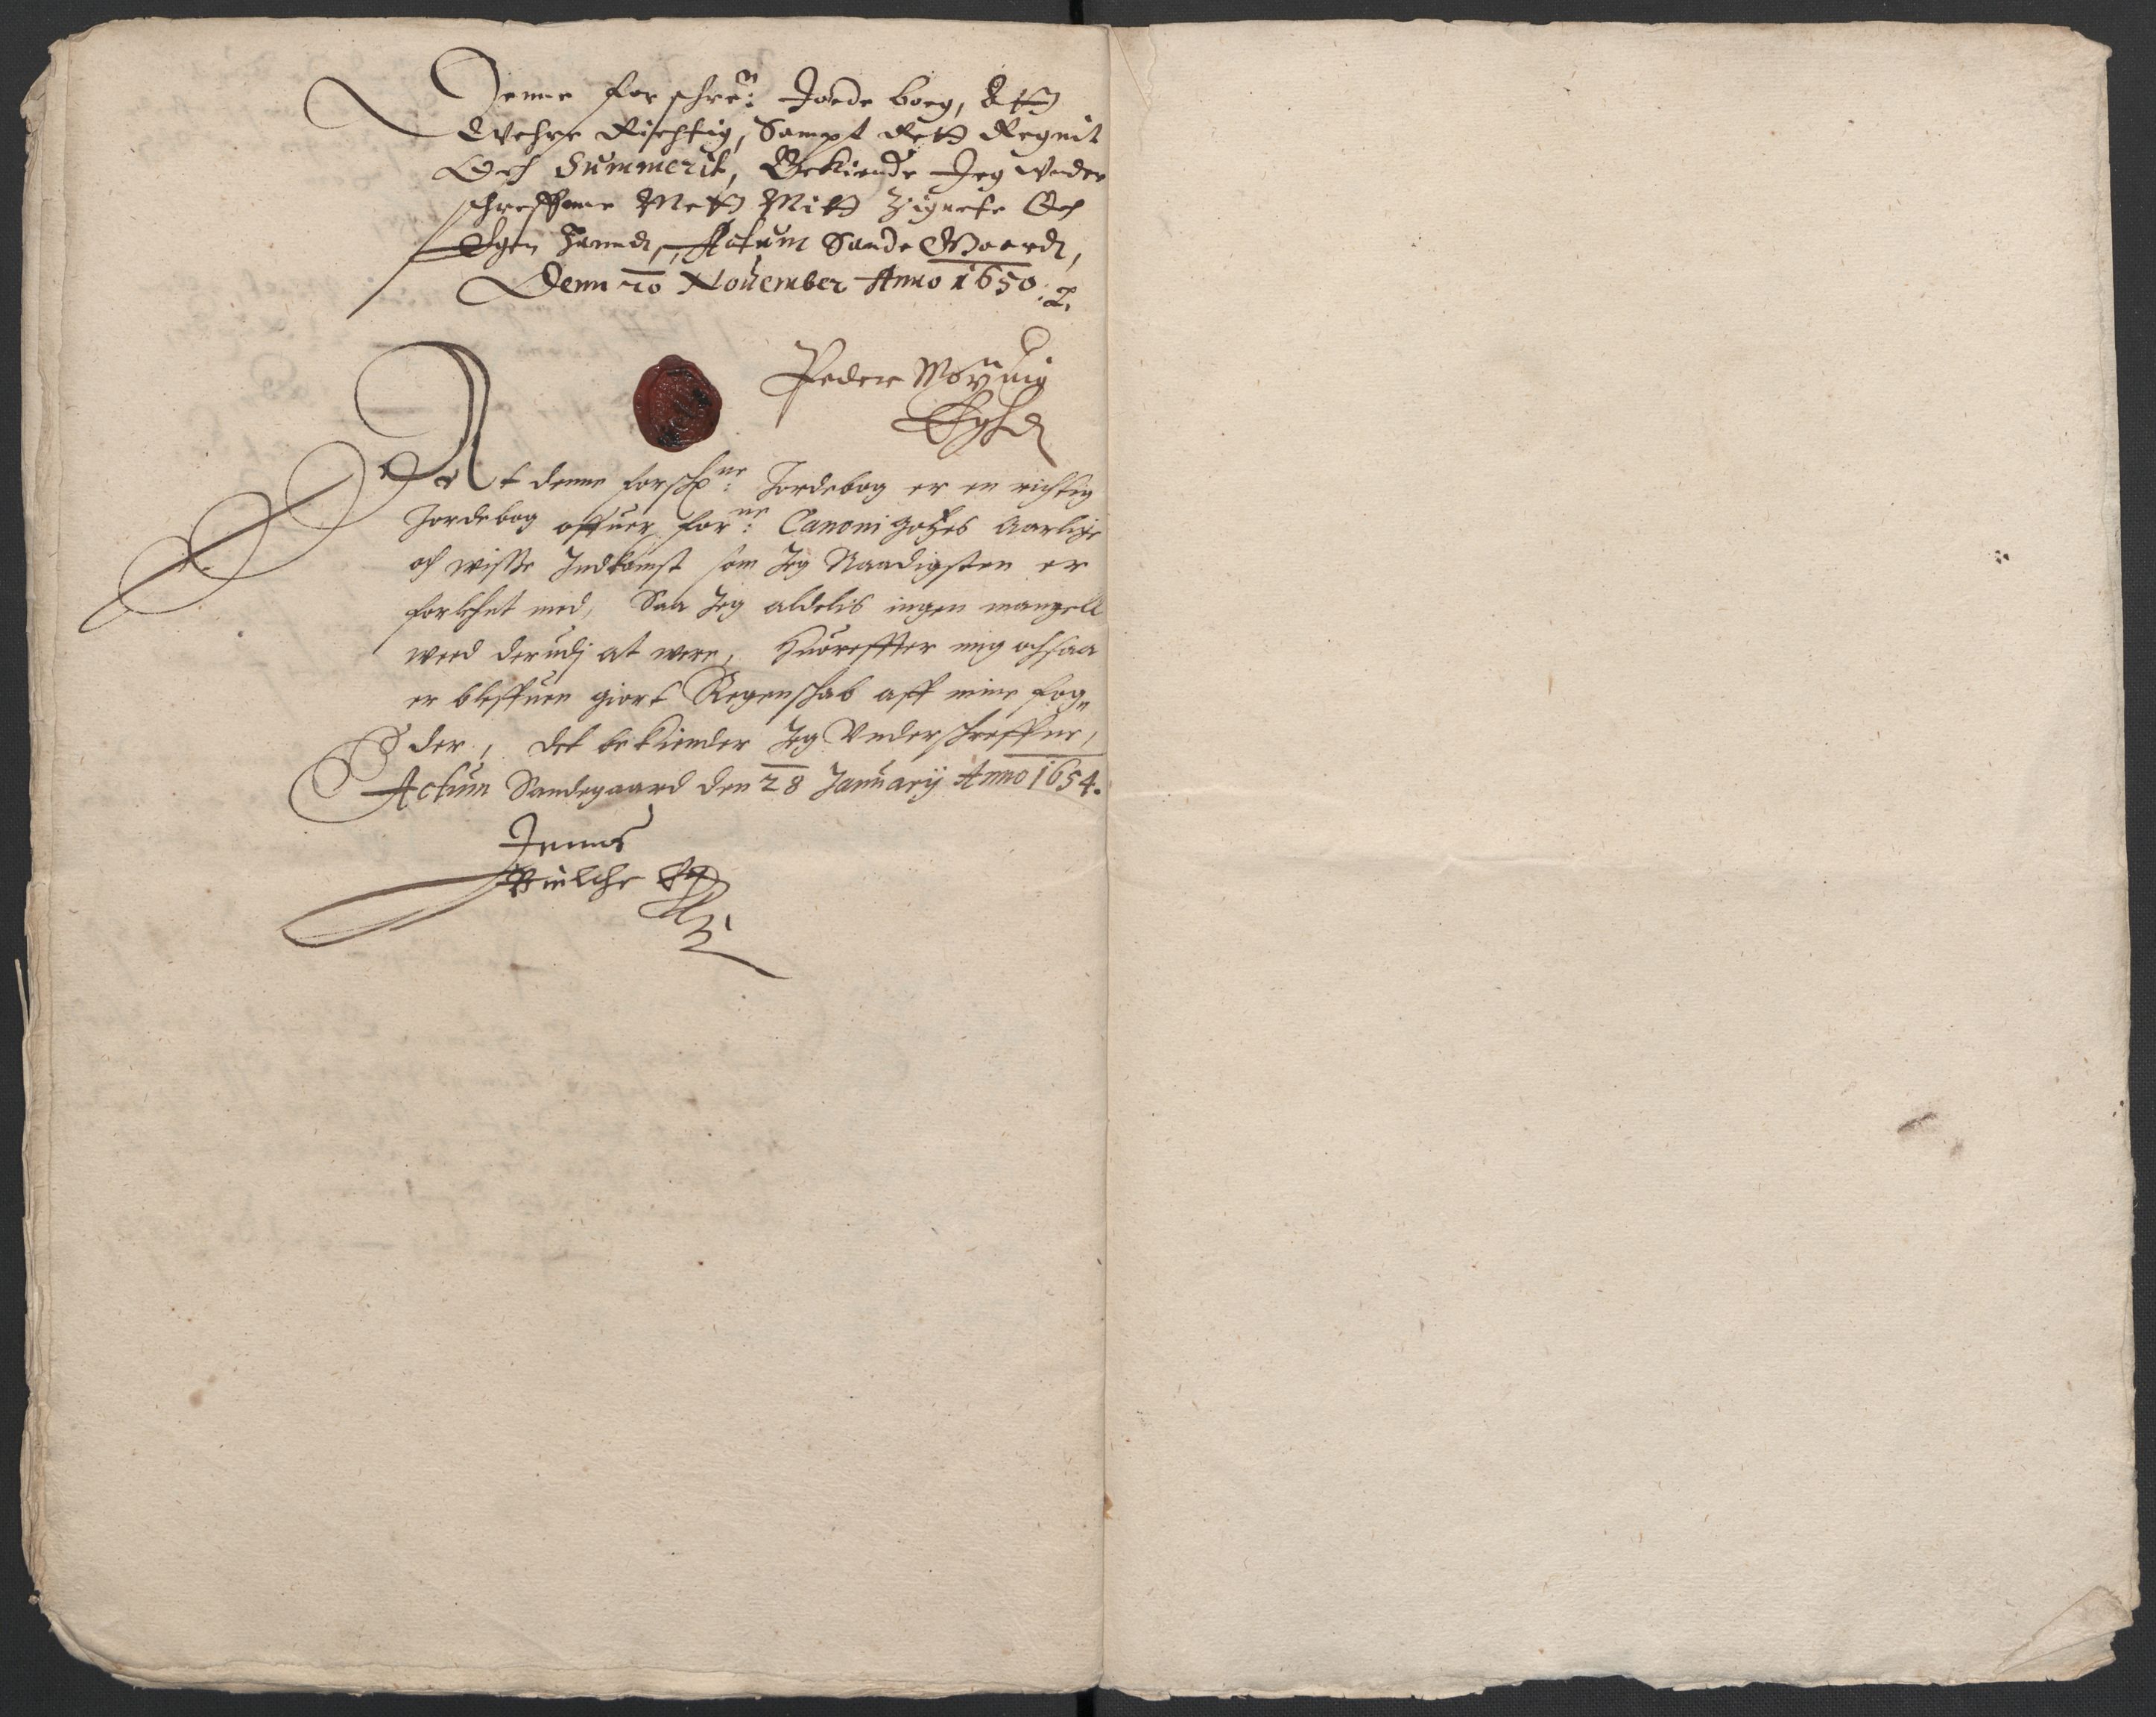 Denne forschre:n Jorde boeg, Att
Wehre Richtig, Sampt Rett Regnit
Och Summerit, Bekiende Jeg vnder
schreffne Mett Mitt Zignete Och
Egen Haand, Actum Sande Gaard,
Denn 20 November Anno 1650.
Peder
Egh
At denne forschne: Jordebog er en richtig
Jordebog offuer forne: Canonigotzes Aarlige
och wisse Indkomst som Jeg Naadigsten er
forlehnt med, Saa Jeg aldelis ingen mangell
weed derudj at were, Huoreffter mig ochsaa
er bleffuen giort Regenschab aff mine fog„
der, det bekiender Jeg Underschreffne,
Actum Sandegaard den 28 Januarij Anno 1654.
Jenns
Bielche